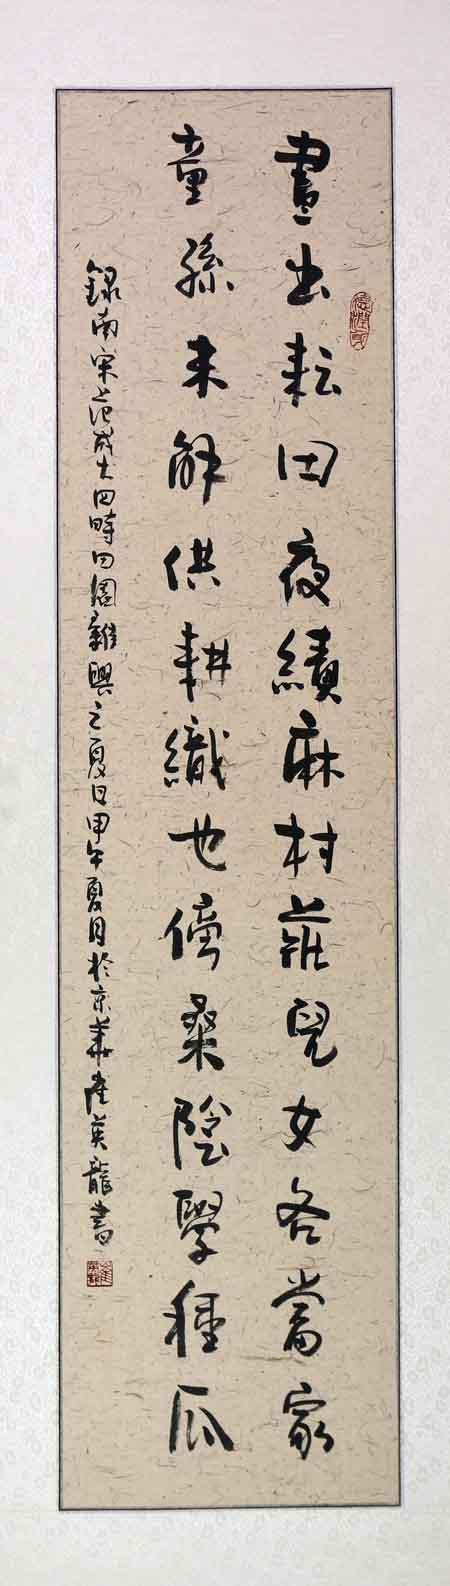 晝出耘田夜績麻村莊兒女各當家
童孫未解供耕織也傍桑陰學種瓜
錄南宋范成大四時田園雜興之夏日甲午夏月於京華崔英龍書